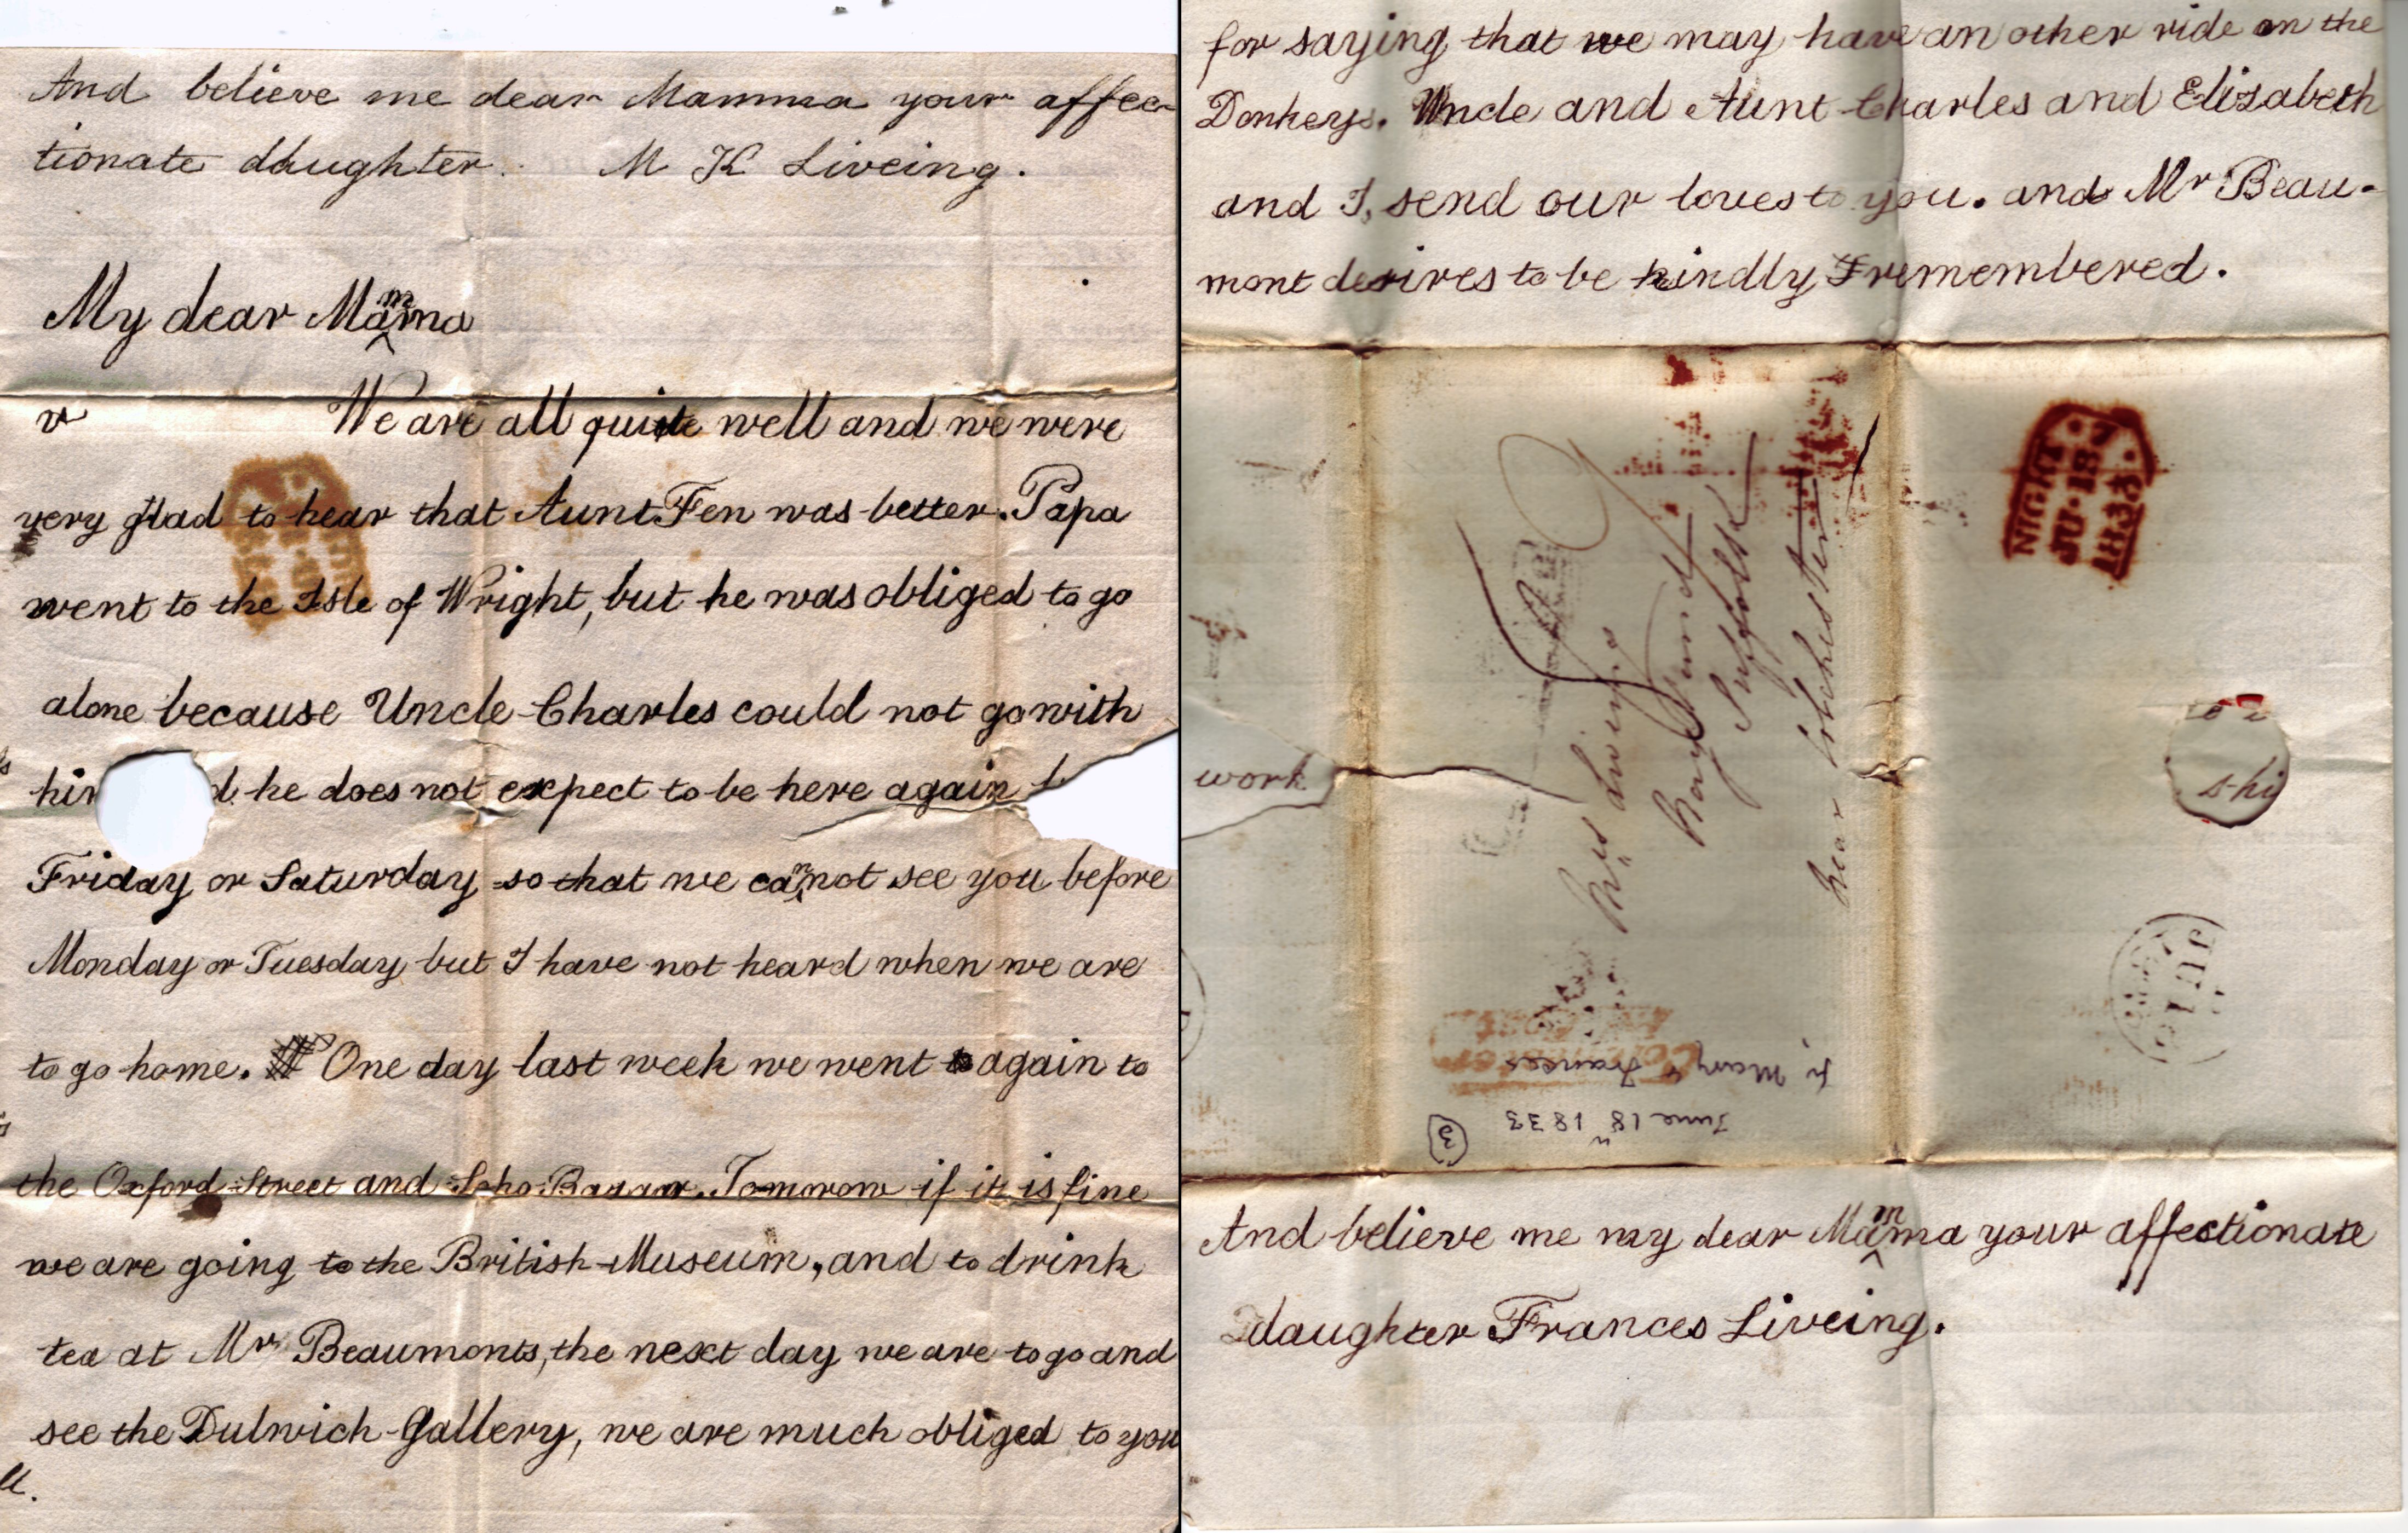 And believe me dear Mamma your affec
tionate daughter. M K Liveing.
My dear Mamma
We are all quite well and we were
very glad to hear that Aunt Fen was better. Papa
went to the Isle of Wright, but he was obliged to go
alone because Uncle Charles could not go with
he does not expect to be here again
Friday or Saturday so that we cannot see you before
Monday or Tuesday but I have not heard when we are
to go home. One day last week we went to again to
the Oxford Street and Soho Bazaar. Tomorow if it is fine
we are going to the British Museum, and to drink
tea at Mr Beaumonts, the next day we are to go and
see the Dulwich Gallery, we are much obliged to you
for saying that we may have an other ride on the
Donkeys. Uncle and Aunt Charles and Elizabeth
and I, send our loves to you. and Mr Beau-
mont desires to be kindly remembered.
work
NIGHT 7
JU 18
1833
shi
Mrs Liveing
Nayland
Suffolk
near Colchester
fr Mary & Frances
June 18th 1833
3
And believe me my dear Mamma your affectionate
daughter Frances Liveing.